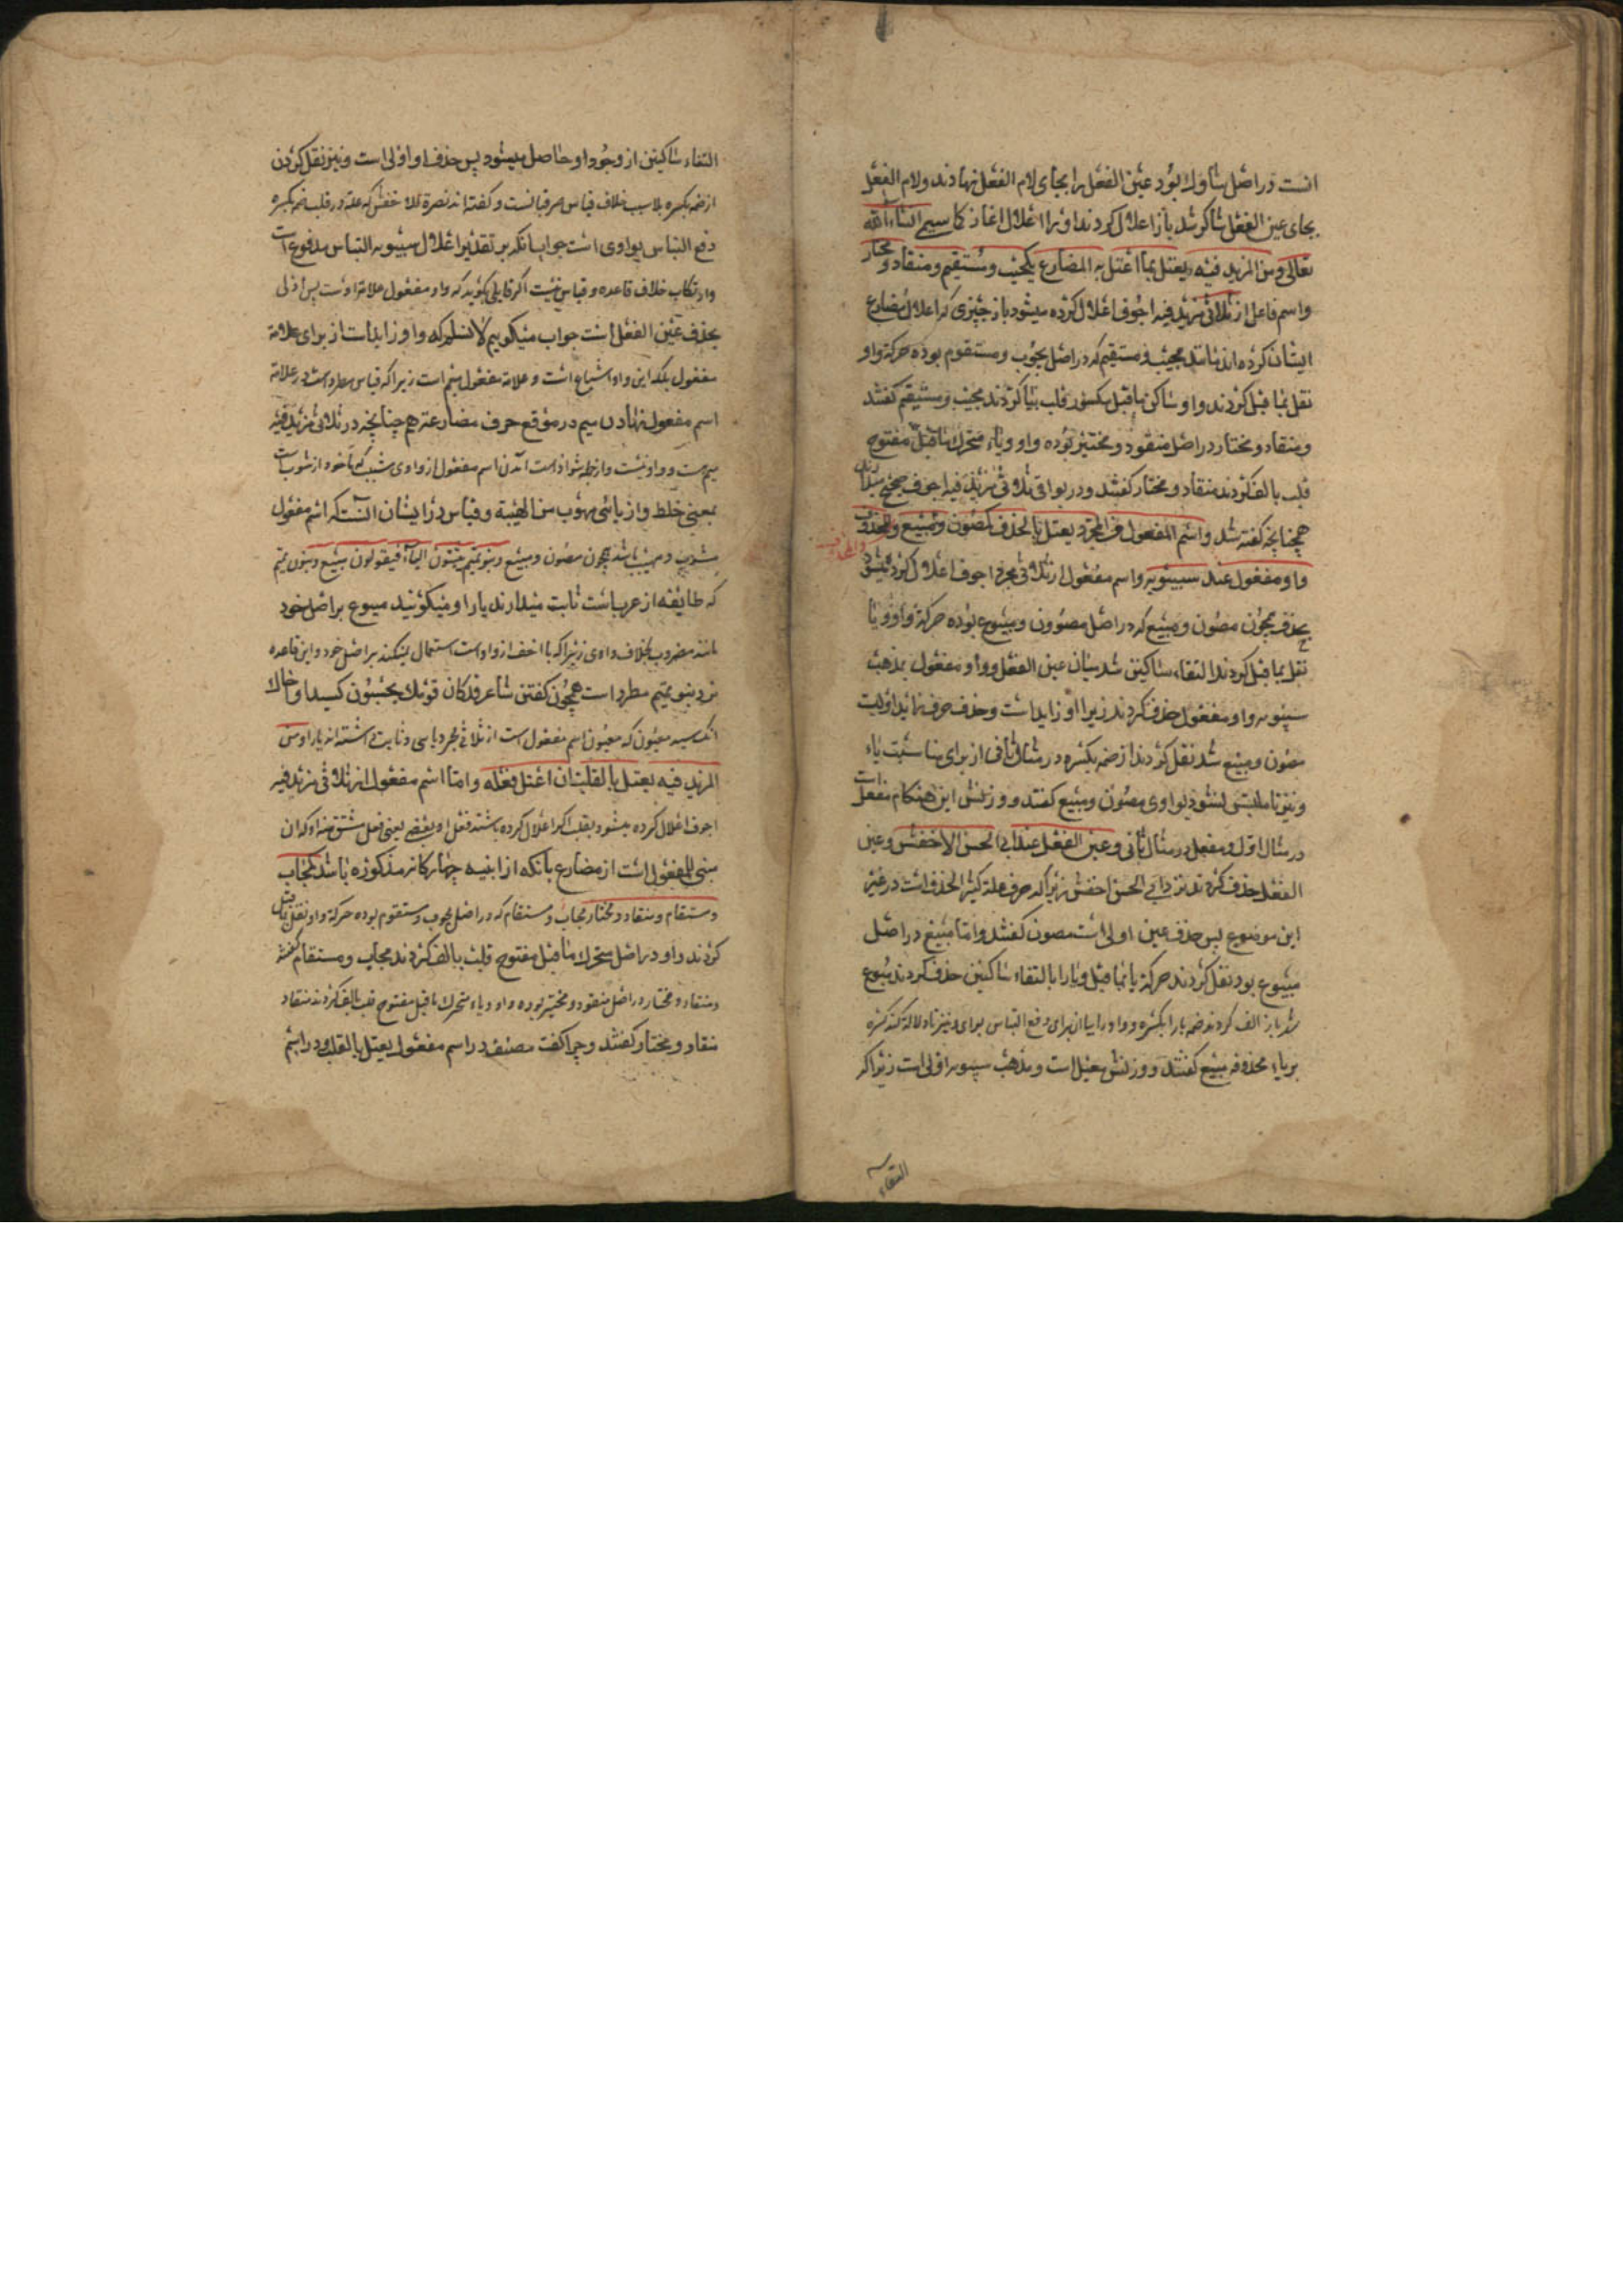 انست در اصل شاوك بود عین الفعل را بجای لام الفعل نهادند ولام الفعل
بجای عین الفعل شاکو شد باز اعلال کردند او را اعلال غاز کما سیجیٔ انشاءالله
تعالی ومن المزید فیه یعتل بما اعتل به المضارع کمجیب ومستقیم ومنقاد ومختار
واسم فاعل از ثلاثی مزید فیه اجوف اعلال کرده میشود باز چیزی که اعلال مضارع
ایشان کرده اند مانند مجیب ومستقیم که در اصل مجوب ومستقوم بوده حرکة واو
نقل بما قبل کردند واو ساکن ماقبل مکسور قلب بیا کردند مجیب ومستقیم گفتند
ومنقاد ومختار در اصل منقود ومختیر بوده واو ویاء متحرك ماقبل مفتوح
قلب بالف کردند منقاد ومختار گفتند ودر بواقی ثلاثی مزید فیه اجوف صحیح میدارند
همچنانچه گفته شد واسم المفعول من المجرد یعتل بالحذف کمصون ومبیع والمحذوف
واو مفعول عند سیبویه واسم مفعول از ثلاثی مجرد اجوف اعلال کرده میشود
بحذف همچون مصون ومبیع که در اصل مصوون ومبیوع بوده حرکة واو ویا
نقل بما قبل کردند التقاء ساکنین شد میان عین الفعل وواو مفعول بمذهب
سیبویه واو مفعول حذف کردند زیرا او زایداست وحذف حرف زاید اولیست
مصون ومبیع شد نقل کردند از ضمه بکسره در مثال ثانی از برای مناسبت یاء
ونیز تا ملتبس نشود بواوی مصون ومبیع گفتند ووزنش این هنکام مفعل است
در مثال اول ومفعل در مثال ثانی وعین الفعل عند ابی الحسن الاخفش وعین
الفعل حذف کردند نزد ابی الحسن اخفش زیرا که حرف علة کثیر الحذف است در غیر
این موضوع پس حذف عین اولی است مصون گفتند واما مبیع در اصل
مبیوع بود نقل کردند حرکة یا بما قبل ویا را بالتقاء ساکنین حذف کردند مبوع
شد باز الف کردند ضمه با را بکسره وواو را بیا از برای دفع التباس بواوی ونیز تا دلالة کند کسره
بر یاء محذوفه مبیع گفتند ووزنش مفیل است ومذهب سیبویه اولی است زیرا که
التقاء
التقاء ساکنین از وجود او حاصل میشود پس حذف او اولی است ونیز نقل کردن
از ضمه بکسره بلا سبب خلاف قیاس صرفیانست وگفته اند نصرة للاخفش که علة در قلب ضمه بکسره
دفع التباس بواوی است جواب آنکه بر تقدیر اعلال سیبویه التباس مدفوع است
وارتکاب خلاف قاعده وقیاس نیست اگر قایلی بگوید که واو مفعول علامة اوست پس اولی
بحذف عین الفعل است جواب میگوییم لانسلم که واو زایداست از برای علامة
مفعول بلکه این واو اشباع است وعلامة مفعول میم است زیرا که قیاس مطرد است در علامة
اسم مفعول نهادن میم در موقع حرف مضارعة هم چنانچه در ثلاثی مزید فیه
میم هست وواو نیست واز جمله شواذ است آمدن اسم مفعول از واوی مشیب که ماخوذ از شوب است
بمعنی خلط واز یائی مهوب من الهیبة وقیاس در ایشان آنست که اسم مفعول
مشوب ومهیب باشد همچون مصون ومبیع وبنو تمیم یثبتون الیاء فیقولون مبیوع وبنو تمیم
که طایفه از عرباست ثابت میدارند یا را ومیگویند مبیوع بر اصل خود
مانند مضروب بخلاف واوی زیرا که یا اخف از واو است استعمال میکنند بر اصل خود واین قاعده
نزد بنو تمیم مطرد است همچون گفتن شاعر قد کان قومك یحسبون کسیدا وخال
انك سید معیون که معیون اسم مفعول است از ثلاثی مجرد یایی وثابت داشته اند یا را ومن
المزید فیه یعتل بالقلب ان اعتل فعله واما اسم مفعول از ثلاثی مزید فیه
اجوف اعلال کرده میشود بقلب اگر اعلال کرده باشند فعل او بعضی یعنی فعل مشتق منه او که ان
مبنی للمفعول است از مضارع بانکه از ابنیه چهارکانه مذکوره باشد کمجاب
ومستقام ومنقاد ومختار مجاب ومستقام که در اصل مجوب ومستقوم بوده حرکة واو نقل بما قبل
کردند واو در اصل متحرك ماقبل مفتوح قلب بالف کردند مجاب ومستقام گفتند
ومنقاد ومختار در اصل منقود ومختیر بوده واو ویاء متحرك ماقبل مفتوح قلب بالف کردند منقاد
منقاد ومختار گفتند وچرا گفت مصنف در اسم مفعول یعتل بالقلب ودر اسم